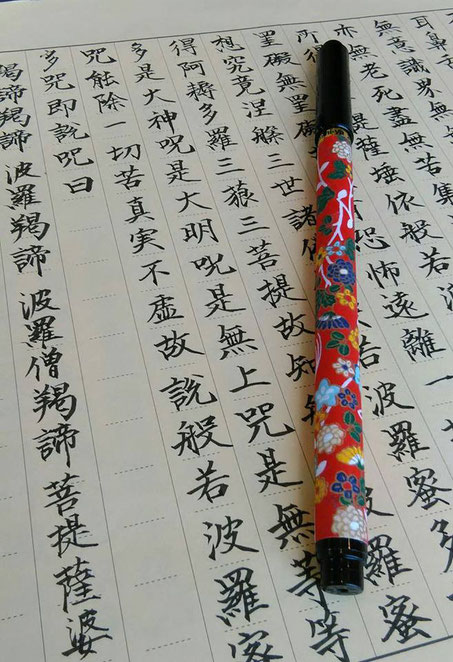 耳鼻
無意識界無無
亦無老死盡無苦集
所得 提薩埵依般若波
罣礙無罣礙 恐怖遠離一
想究竟涅槃三世諸 若波羅蜜多
得阿耨多羅三藐三菩提故知 波羅蜜
多是大神呪是大明呪是無上呪是無等等
呪能除一切苦真実不虚故説般若波羅蜜
多呪即説呪曰
羯諦羯諦波羅羯諦波羅僧羯諦菩提薩婆